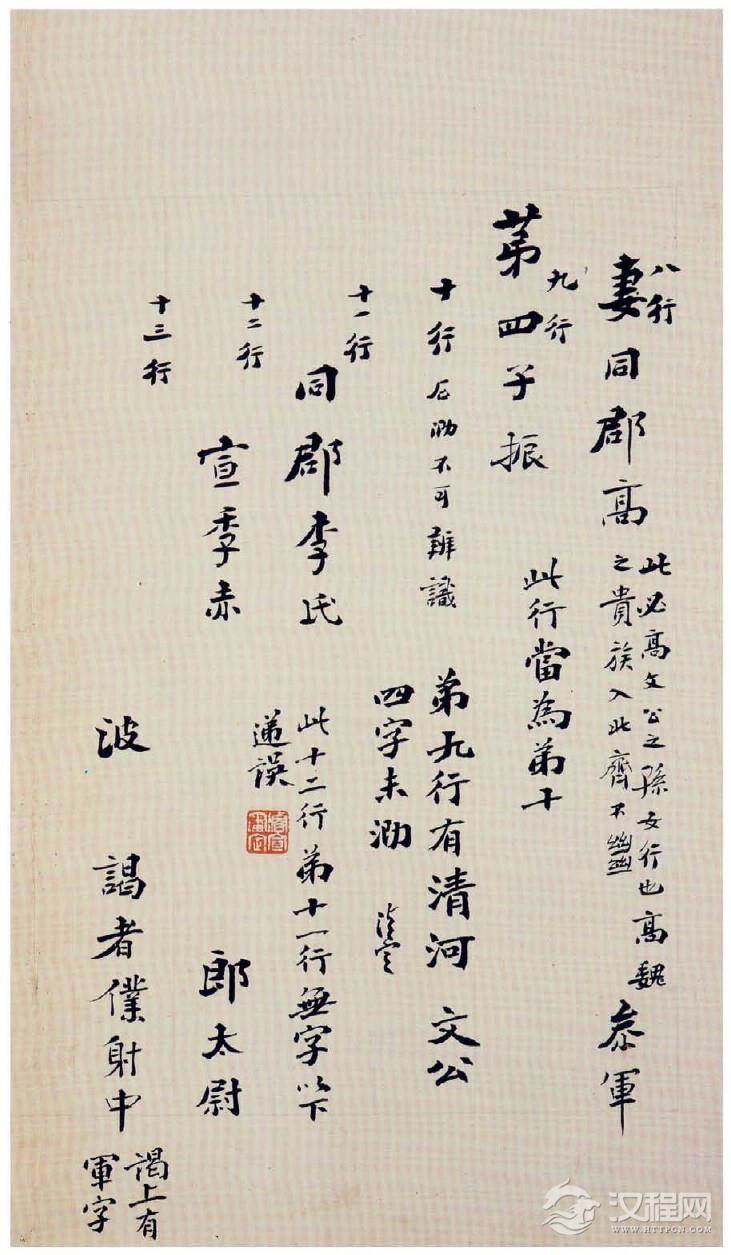 八行
妻同郡高
此必高文公之孫女行也高魏
之貴族入此齊不
叅軍
九行
第四子振
此行當為弟十
十行
石泐不可辨識
弟九行有清河 文公
四字未泐
十一行
同郡李氏
此十二行弟十一行無字以下
遞誤
十二行
宣季赤
郎太尉
十三行
波
謁者僕射中
謁上有
軍字
汉程网
WWW.HTTPCN.COM